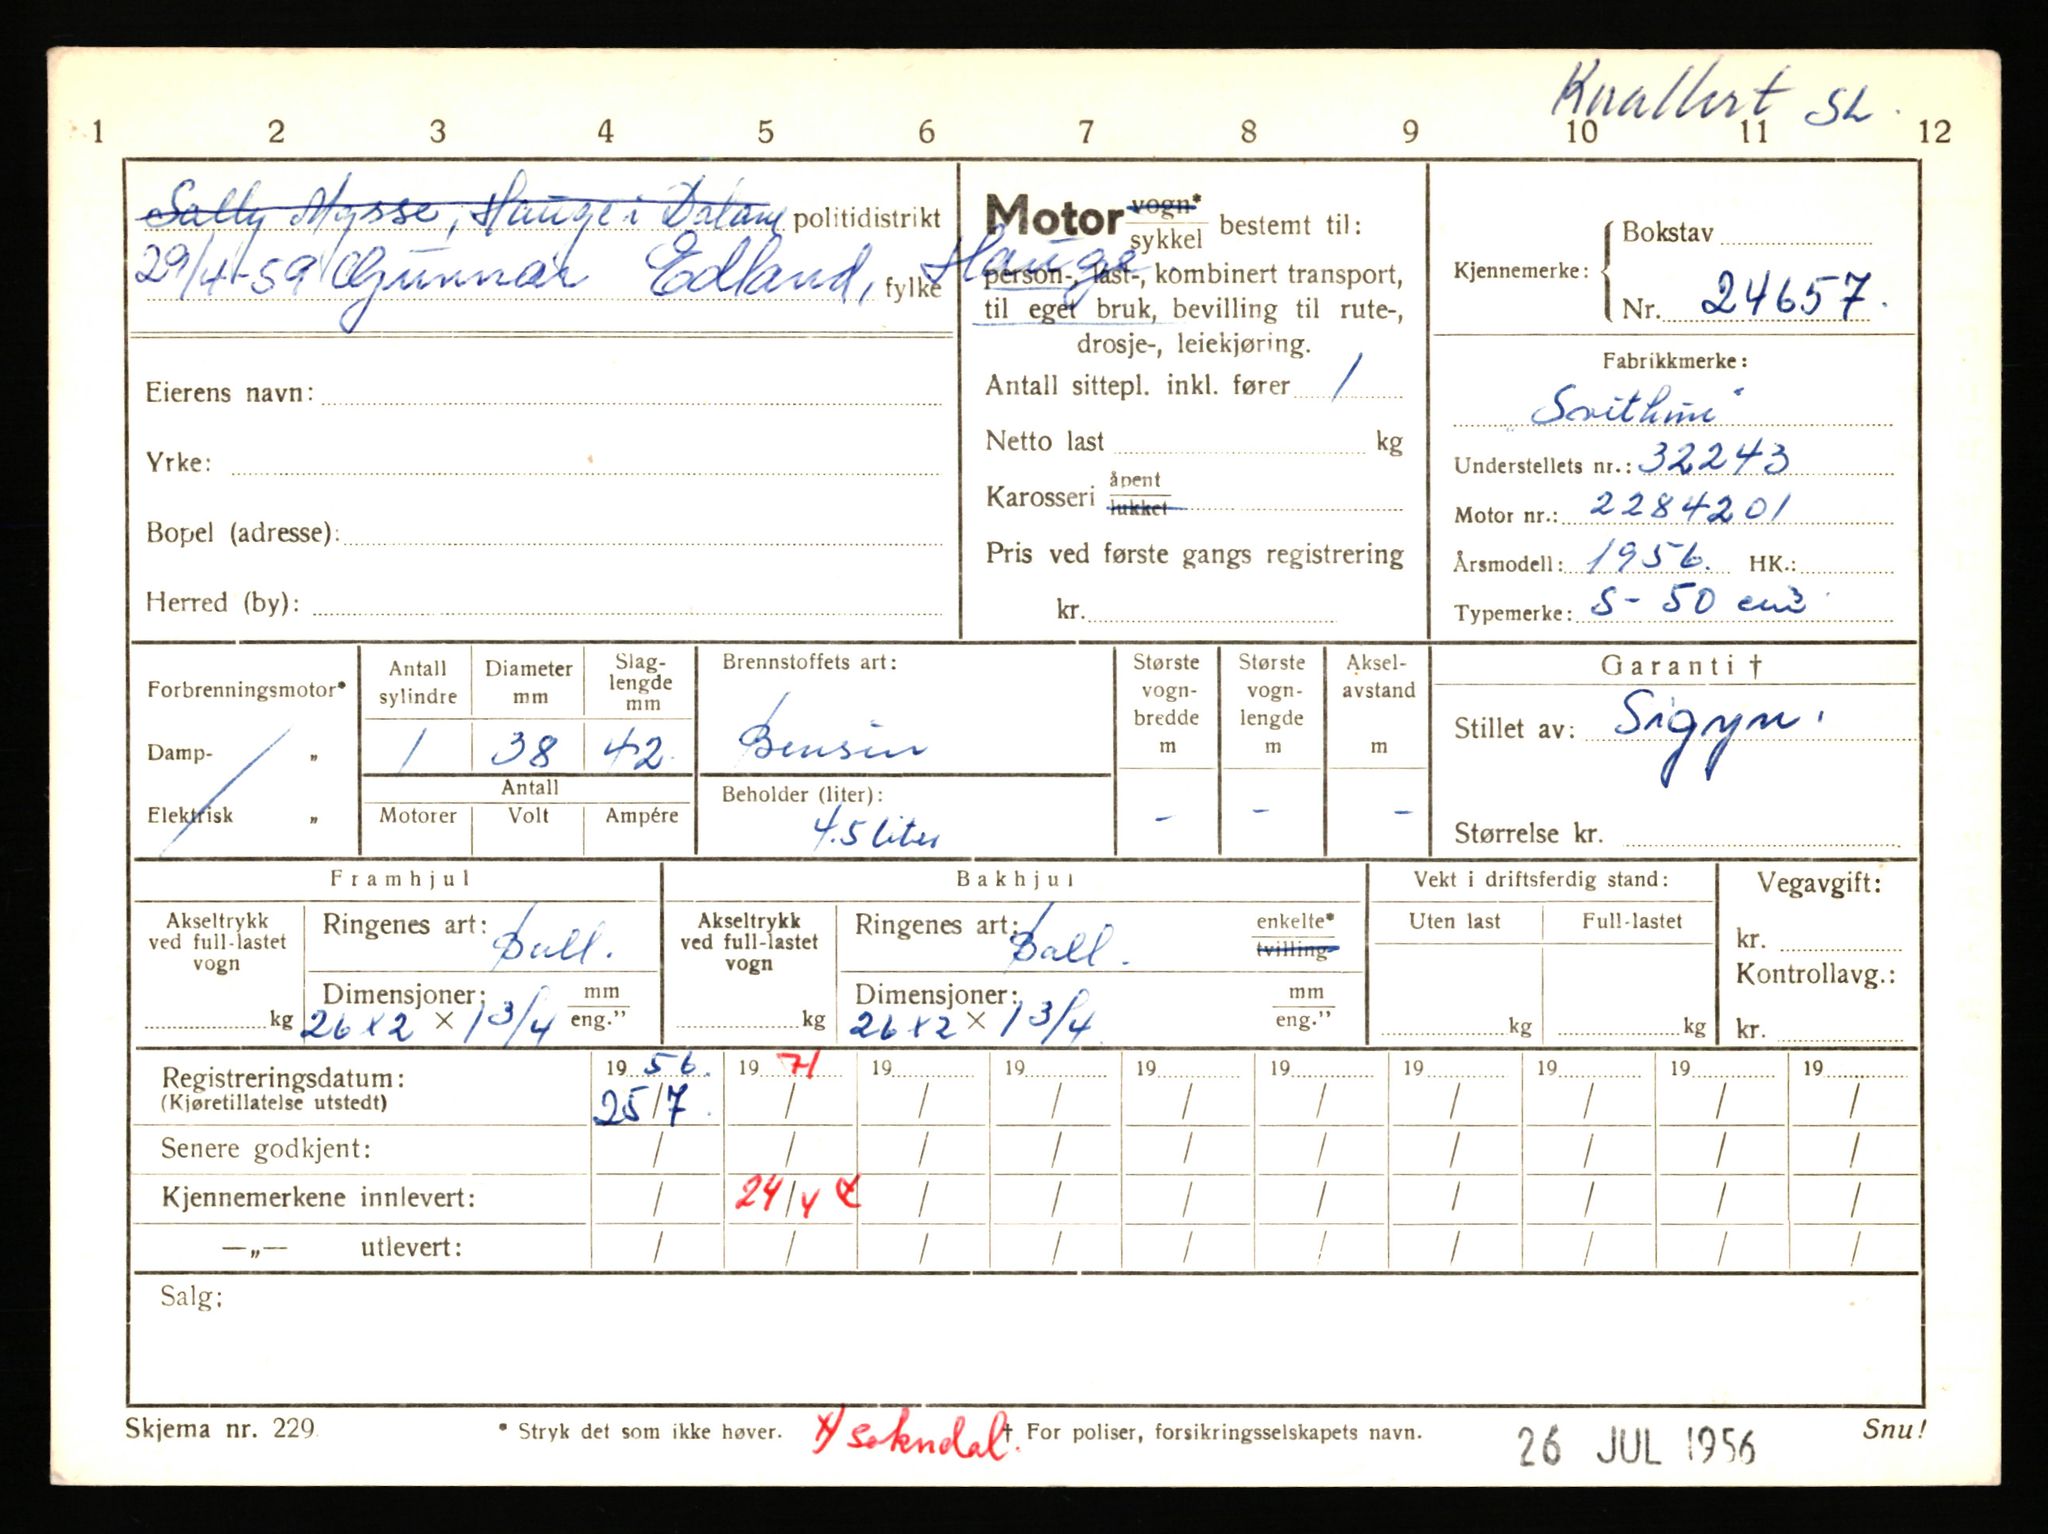 Knallert SL.
1 2 3 4 5 6 7 8 9 10 11 12
Sally Mysse, Hauge i Dalane politidistrikt
29/4-59 Gunnar Edland, Hauge. fylke
Eierens navn:
Yrke:
Bopel (adresse):
Herred (by):
Motor vogn* sykkel bestemt til:
person-, last-, kombinert transport,
til eget bruk, bevilling til rute-,
drosje-, leiekjøring.
Antall sittepl. inkl. fører 1
Netto last kg
Karosseri åpent lukket
Pris ved første gangs registrering
kr.
Kjennemerke: Bokstav
Nr. 24657.
Fabrikkmerke:
"Svithun"
Understellets nr.: 32243
Motor nr.: 2284201
Årsmodell: 1956. HK.:
Typemerke: S- 50 cm3
Forbrenningsmotor*
Damp- „
Elektrisk „
Antall sylindre Diameter mm Slag-lengde mm
1 38 42.
Antall
Motorer Volt Ampére
Brennstoffets art:
Bensin
Beholder (liter):
4.5 liter
Største vogn-bredde m Største vogn-lengde m Aksel-avstand m
- - -
Garanti †
Stillet av: Sigyn.
Størrelse kr.
Framhjul
Akseltrykk ved full-lastet vogn
kg
Ringenes art: Ball.
Dimensjoner: mm eng."
26 x 2 × 1 3/4
Bakhjul
Akseltrykk ved full-lastet vogn
kg
Ringenes art: Ball. enkelte* tvilling-
Dimensjoner: mm eng."
26 x 2 × 1 3/4
Vekt i driftsferdig stand:
Uten last Full-lastet
kg kg
Vegavgift:
kr.
Kontrollavg.:
kr.
Registreringsdatum: 19 56. 19 71 19 19 19 19 19 19 19 19
(Kjøretillatelse utstedt) 25/7. / / / / / / / / /
Senere godkjent: / / / / / / / / / /
Kjennemerkene innlevert: / 24/4 x / / / / / / / /
—„— utlevert: / / / / / / / / / /
Salg:
Skjema nr. 229 * Stryk det som ikke høver. x) sokndal. † For poliser, forsikringsselskapets navn. 26 JUL 1956 Snu!